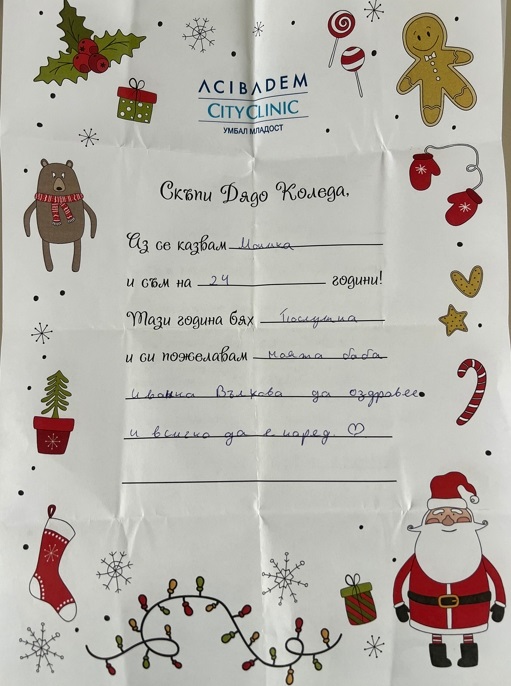 ACIBADEM
CITY CLINIC
УМБАЛ МЛАДОСТ
Скъпи Дядо Коледа,
Аз се казвам Моника
и съм на 24 години!
Тази година бях Послушна
и си пожелавам моята баба
Иванка Вълкова да оздравее
и всичко да е наред. ♡